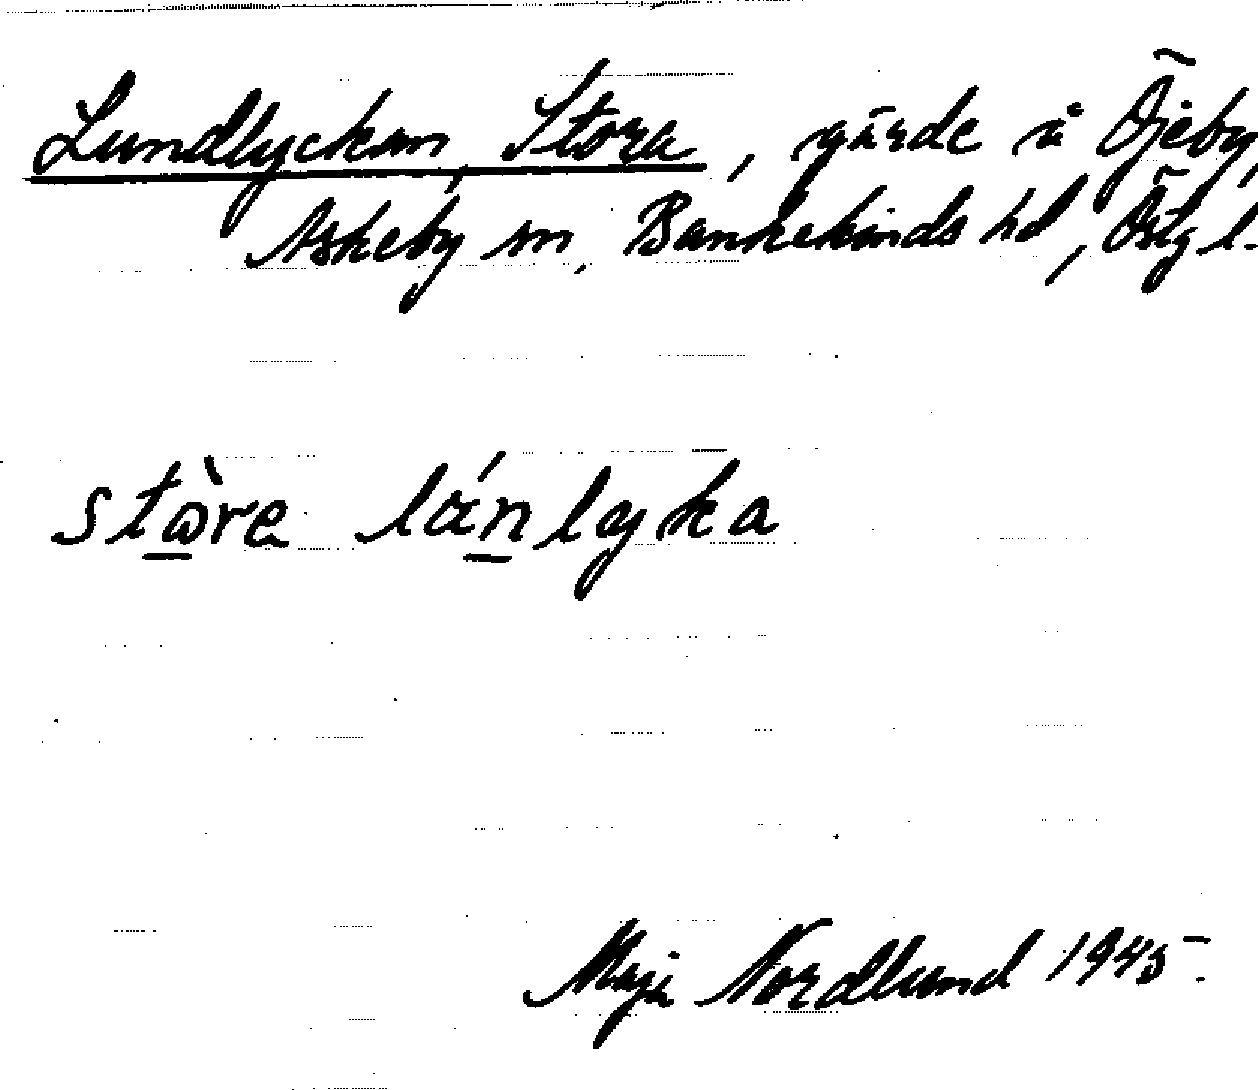 Lundlyckan, Stora, gärde å Öjeby,
Askeby sn, Bankekinds hd, Östg l.
stὼre lánlyka
Maja Nordlund 1945.